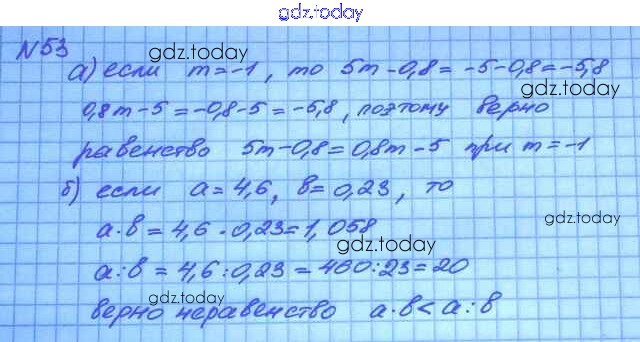 gdz.today
N53
gdz.today
а) если m=-1, то 5m-0,8=-5-0,8=-5,8
gdz.today
0,8m-5=-0,8-5=-5,8, поэтому верно
равенство 5m-0,8=0,8m-5 при m=-1
б) если a=4,6, в=0,23, то
gdz.today
a·в=4,6·0,23=1,058
gdz.today
a:в=4,6:0,23=460:23=20
gdz.today
верно неравенство a·в<a:в